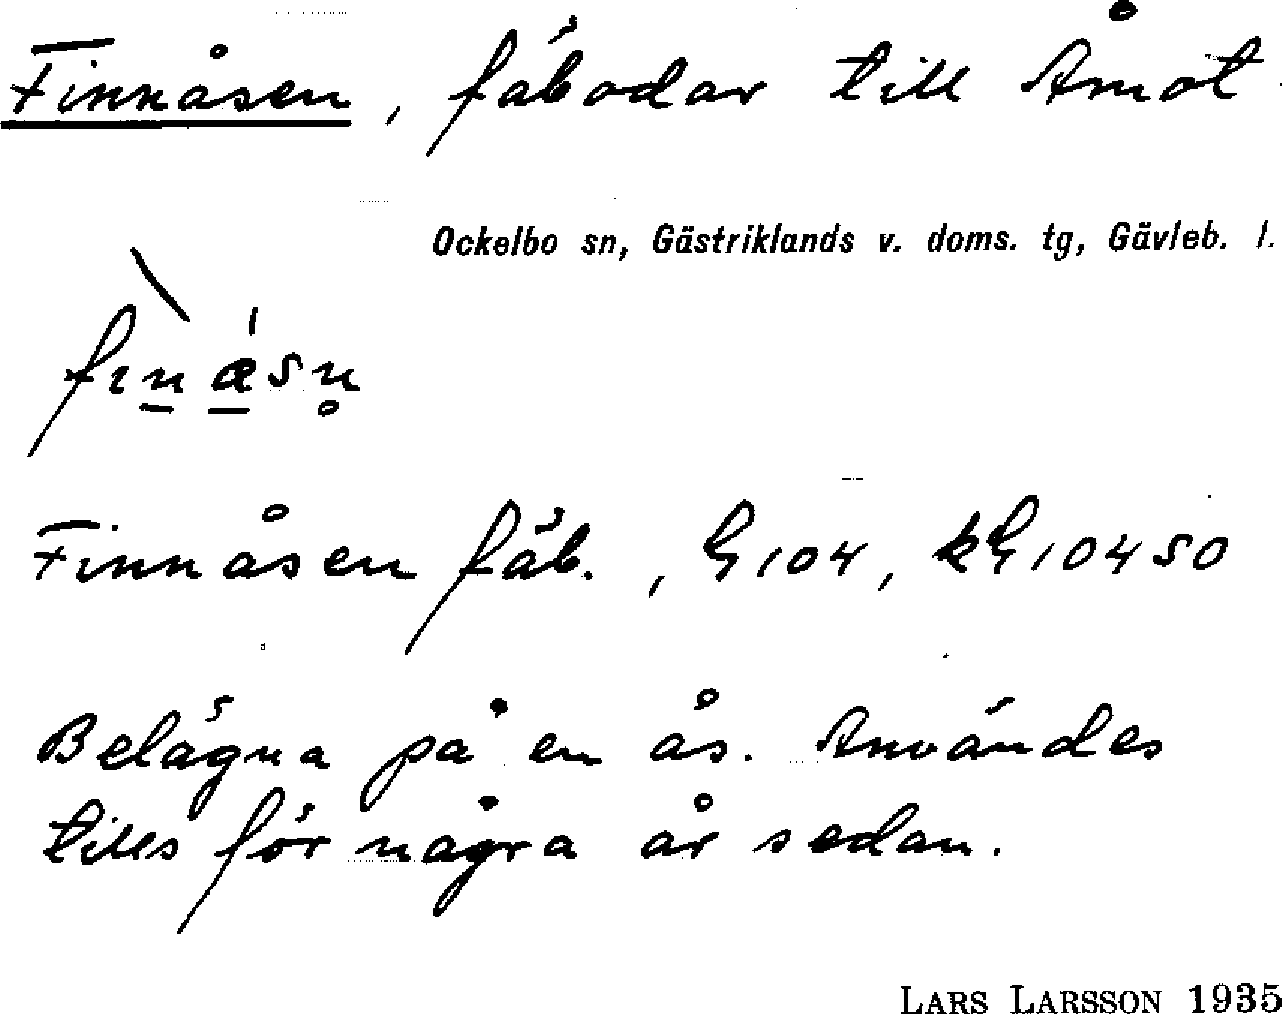 Finnåsen, fäbodar till Åmot.
Ockelbo sn, Gästriklands v. doms. tg, Gävleb. l.
fɪ̀n̠ǽ̠sn̥
Finnåsen fäb., G104, kG10450
Belägna på en ås. Användes
tills för några år sedan.
LARS LARSSON 1935